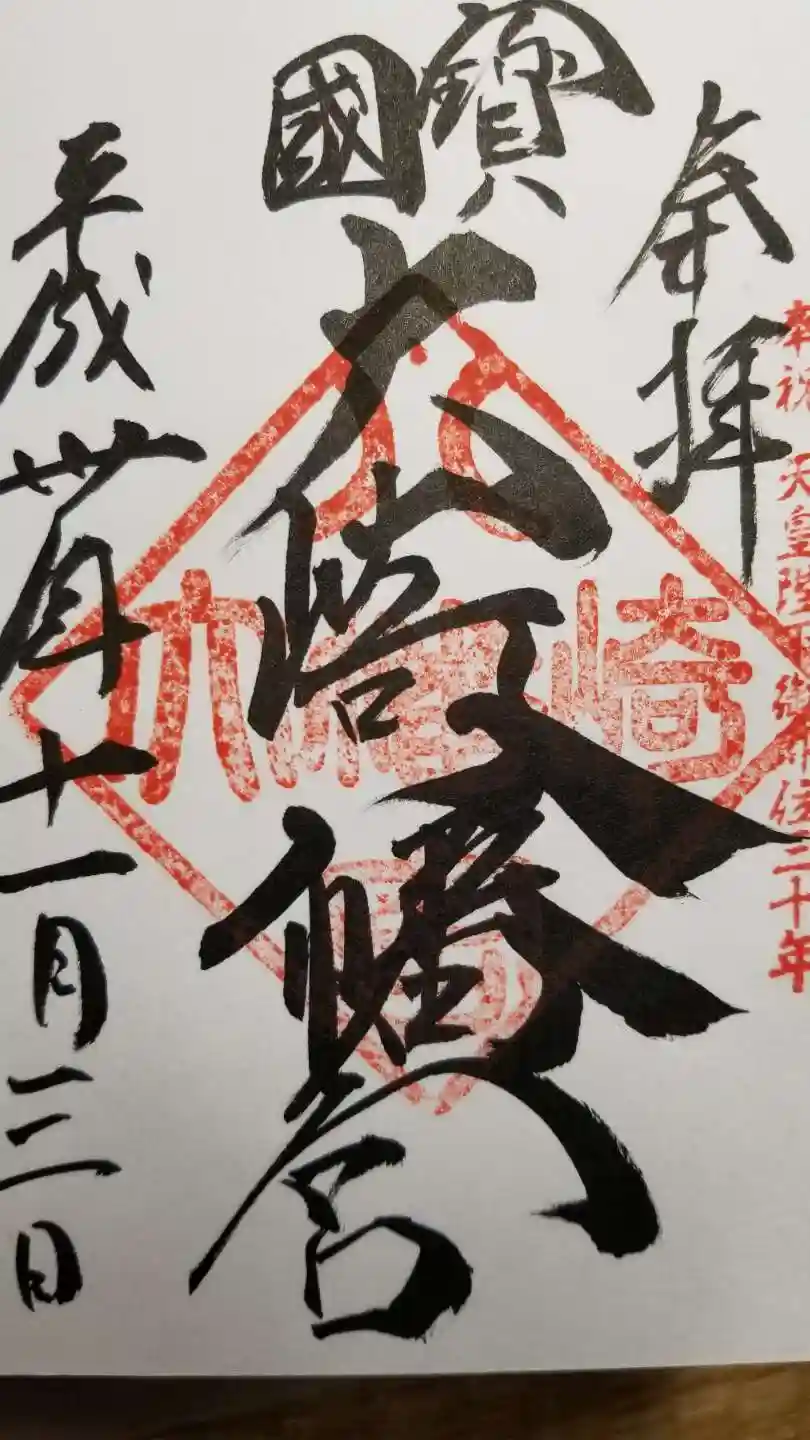 奉祝 天皇陛下御即位三十年
奉拝
國寶
大崎八幡宮
平成卅年十一月三日